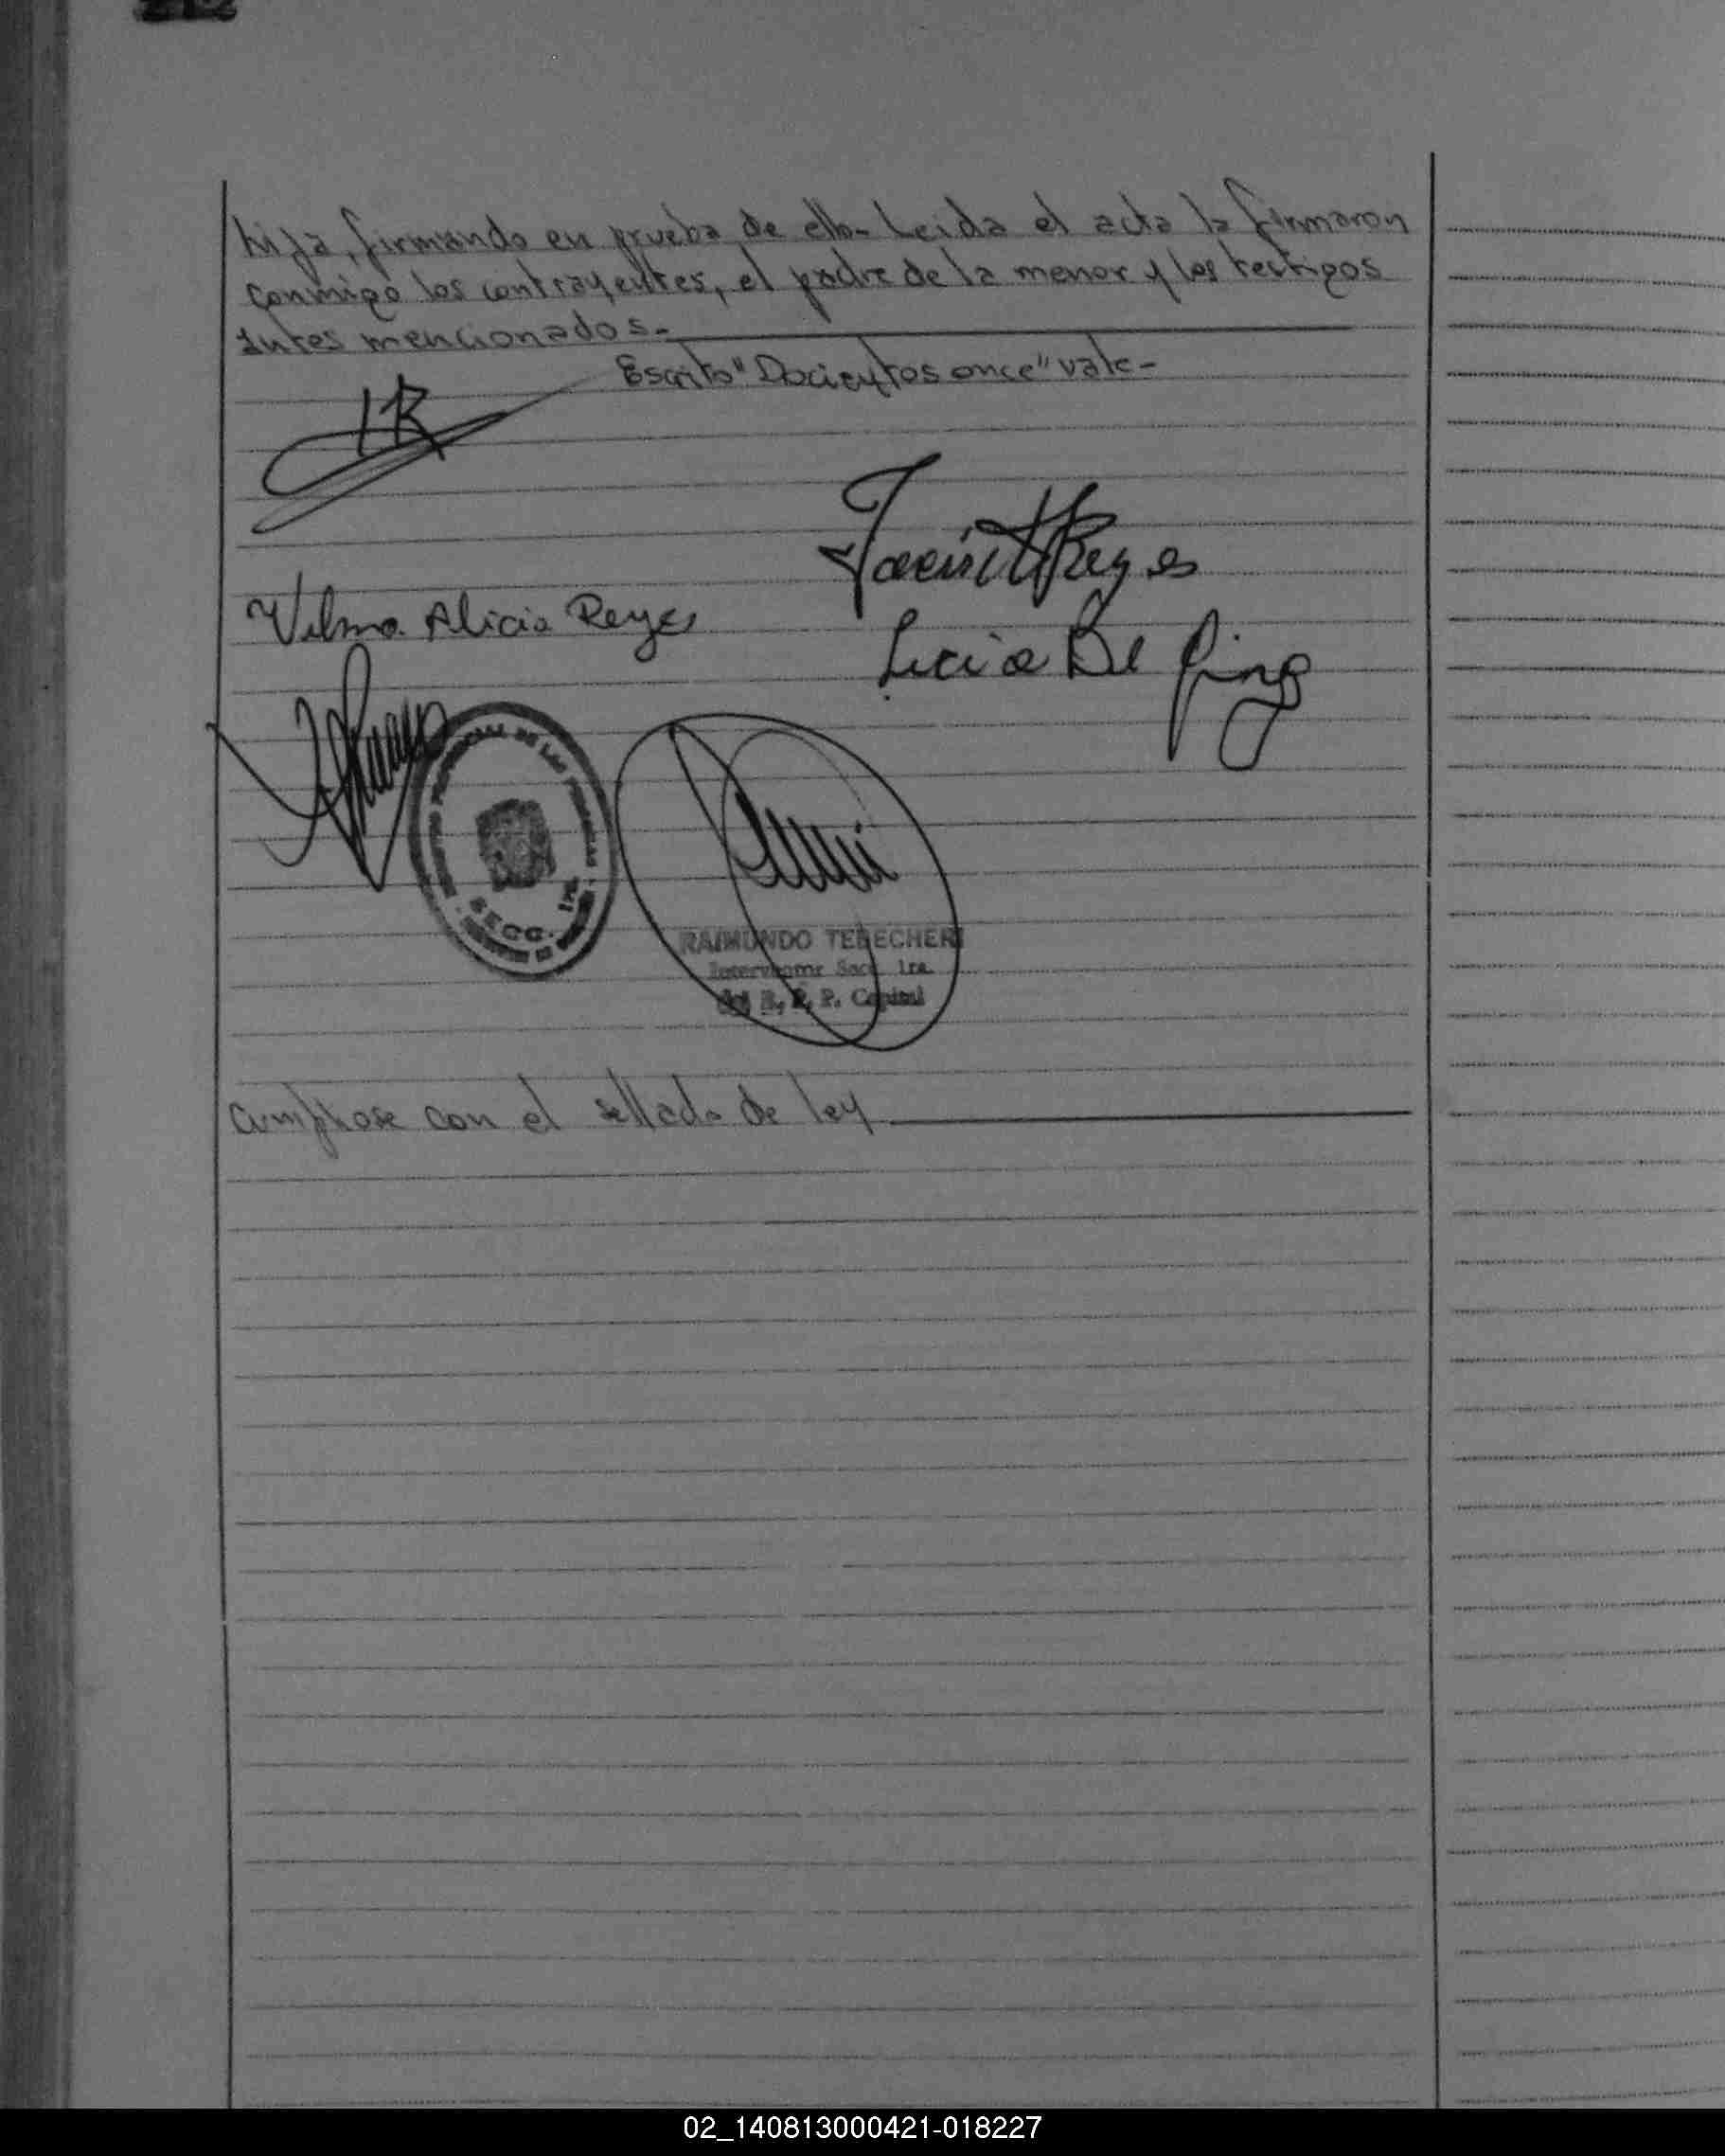 hija, firmando en prueba de ello- Leida el acta la firmaron
conmigo los contrayentes, el padre de la menor y los testigos
antes mencionados.-
Escrito "Docientos once" vale-
Jacinto Reyes
Vilma Alicia Reyes
Lucia
DE LAS
SECC. 1ra.
RAIMUNDO TEBECHERI
Interventor Secc. 1ra.
del R. C. P. Capital
Cumplase con el sellado de ley
02_140813000421-018227